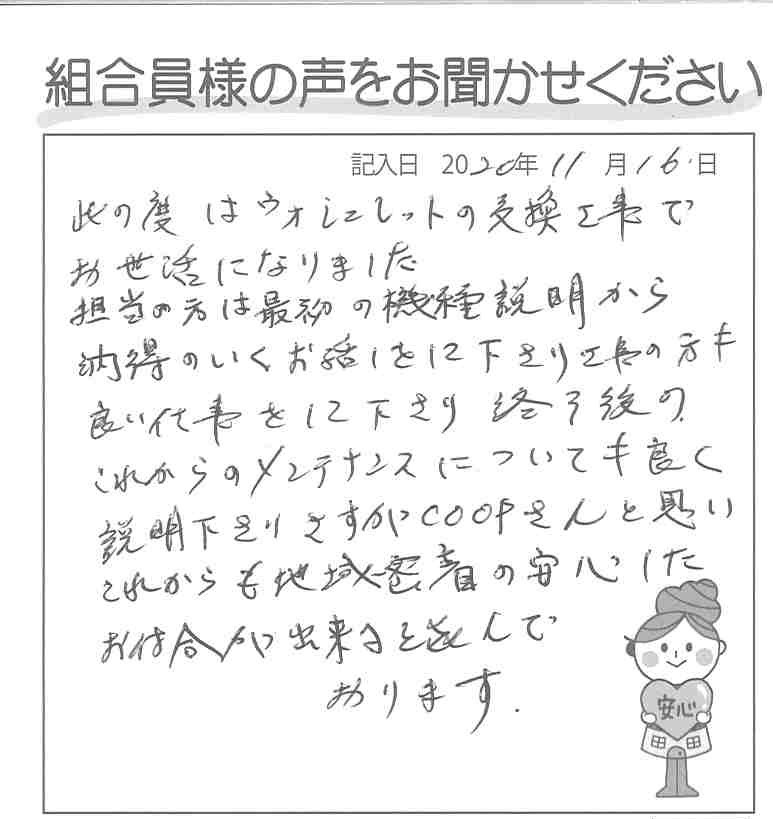 組合員様の声をお聞かせください
記入日 2020年11月16日
此の度はウオシュレットの交換工事で
お世話になりました
担当の方は最初の機種説明から
納得のいくお話しをして下さり工事の方も
良い仕事をして下さり 終了後の
これからのメンテナンスについても良く
説明下さりさすがCOOPさんと思い
これからも地域密着の安心した
お付合が出来ると
おります.
安心